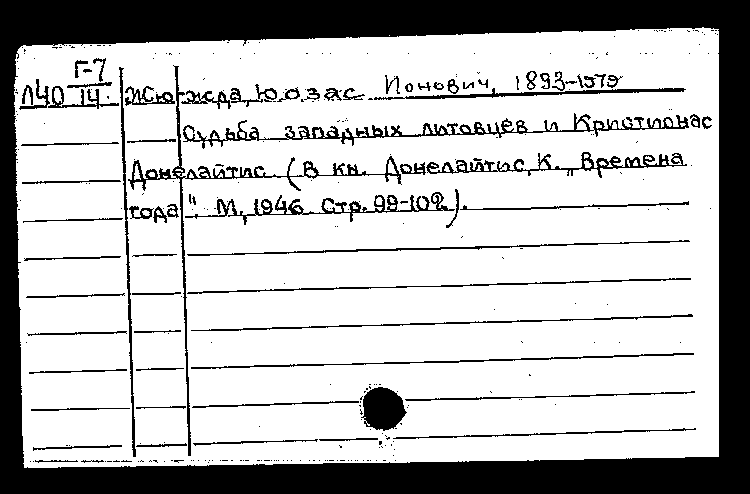 Г-7
Л40 14. Жюжда, Юозас Ионович, 1893-1979
Судьба западных литовцев и Кристионас
Донелайтис (В кн. Донелайтис, К. „Времена
года". М., 1946. Стр. 99-102).